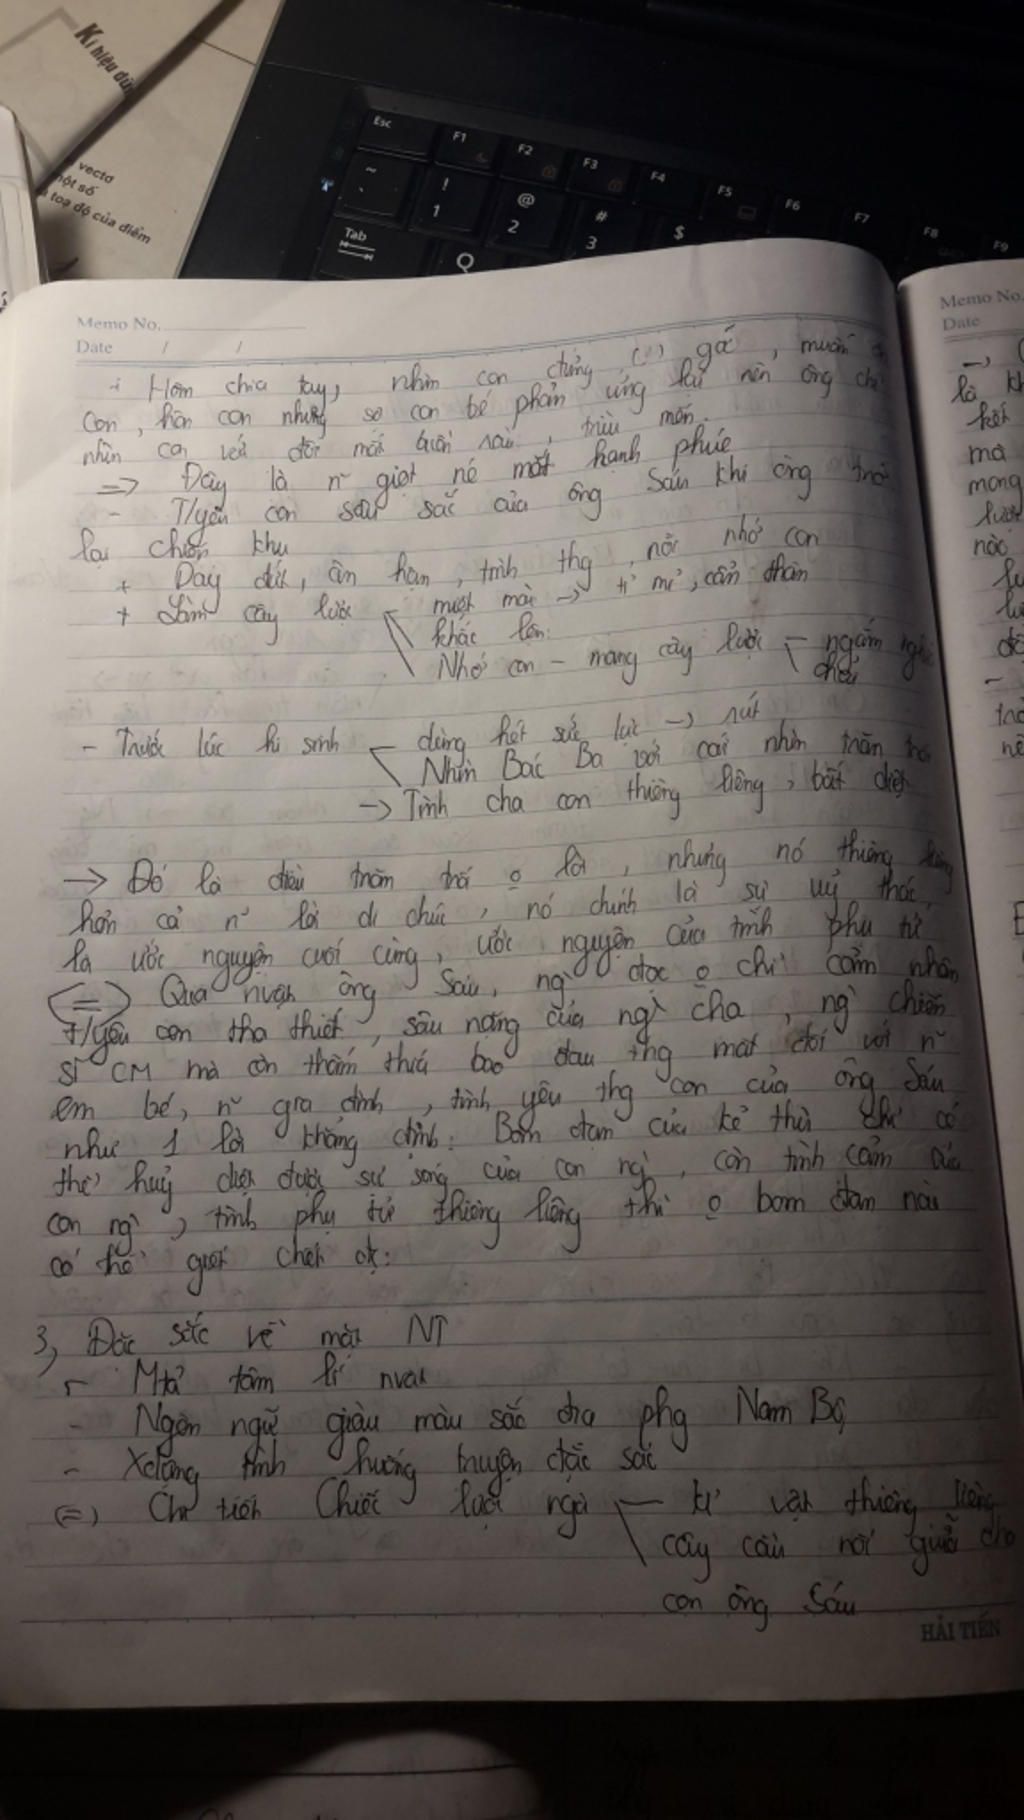 Kí hiệu
vectơ
một số
toạ độ của điểm
Esc F1 F2 F3 F4 F5 F6 F7 F8 F9
~ ! 1 @ 2 # 3 $
Tab Q
Memo No.
Date / /
+ Hôm chia tay, nhìn con đứng góc, muốn
con, hôn con nhưng sợ con bé phản ứng lại nên ông chỉ
nhìn con với đôi mắt buồn rầu, trìu mến.
=> Đây là n~ giọt nc mắt hạnh phúc
- T/yêu con sâu sắc của ông Sáu khi ông trở
lại chiến khu
+ Day dứt, ân hận, tình thg, nỗi nhớ con
+ Làm cây lược
miệt mài -> tỉ mỉ, cẩn thận
khắc tên
Nhớ con - mang cây lược - ngắm nghía
chải
- Trước lúc hi sinh
dùng hết sức lực -> rút
Nhìn Bác Ba với cái nhìn trăn trối
-> Tình cha con thiêng liêng, bất diệt
-> Đó là điều trăn trối o lời, nhưng nó thiêng liêng
hơn cả n~ lời di chúc, nó chính là sự uỷ thác,
là ước nguyện cuối cùng, ước nguyện của tình phụ tử
(=) Qua nvật ông Sáu, ng` đọc o chỉ cảm nhận
t/yêu con tha thiết, sâu nặng của ng` cha, ng` chiến
sĩ CM mà còn thấm thía bao đau thg mất đối với n~
em bé, n~ gia đình, tình yêu thg con của ông Sáu
như 1 lời khẳng định: Bom đạn của kẻ thù chỉ có
thể huỷ diệt được sự sống của con ng`, còn tình cảm của
con ng`, tình phụ tử thiêng liêng thì o bom đạn nào
có thể giết chết đc.
3, Đặc sắc về mặt NT
- Mtả tâm lí nvật
- Ngôn ngữ giàu màu sắc địa phg Nam Bộ
- Xdựng tình huống truyện đặc sắc
(=) Chi tiết Chiếc lược ngà
kỉ vật thiêng liêng
cây cầu nối giữa cha
con ông Sáu
HẢI TIẾN
Memo No.
Date